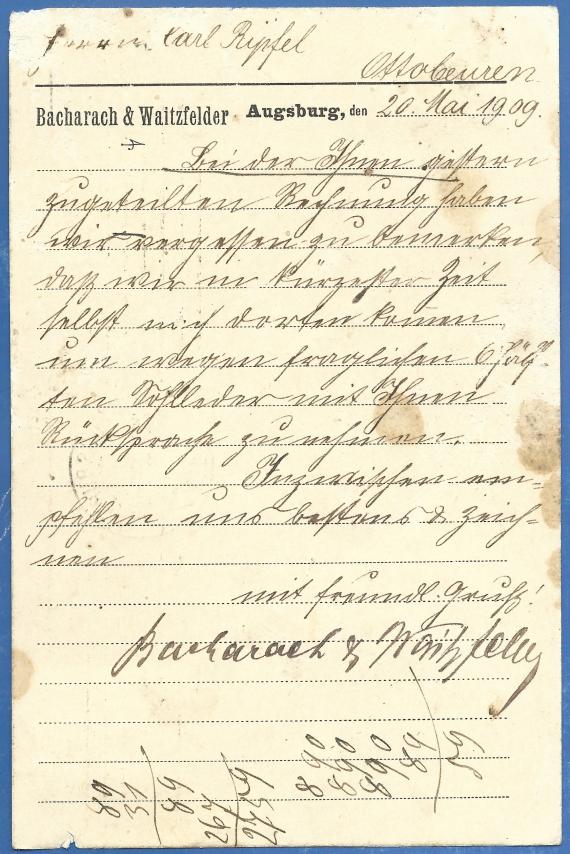 Herrn Carl Ripfel
Ottobeuren
Bacharach & Waitzfelder Augsburg, den 20. Mai 1909.
Bei der Ihnen gestern
zugeteilten Rechnung haben
wir vergessen zu bemerken,
daß wir in kürzester Zeit
selbst nach dorten komen
um wegen fraglichen 6 Hälf-
ten Sohlleder mit Ihnen
Rücksprache zu nehmen.
Inzwischen em-
pfehlen uns bestens & zeich-
nen
mit freundl. Gruß!
Bacharach & Waitzfelder